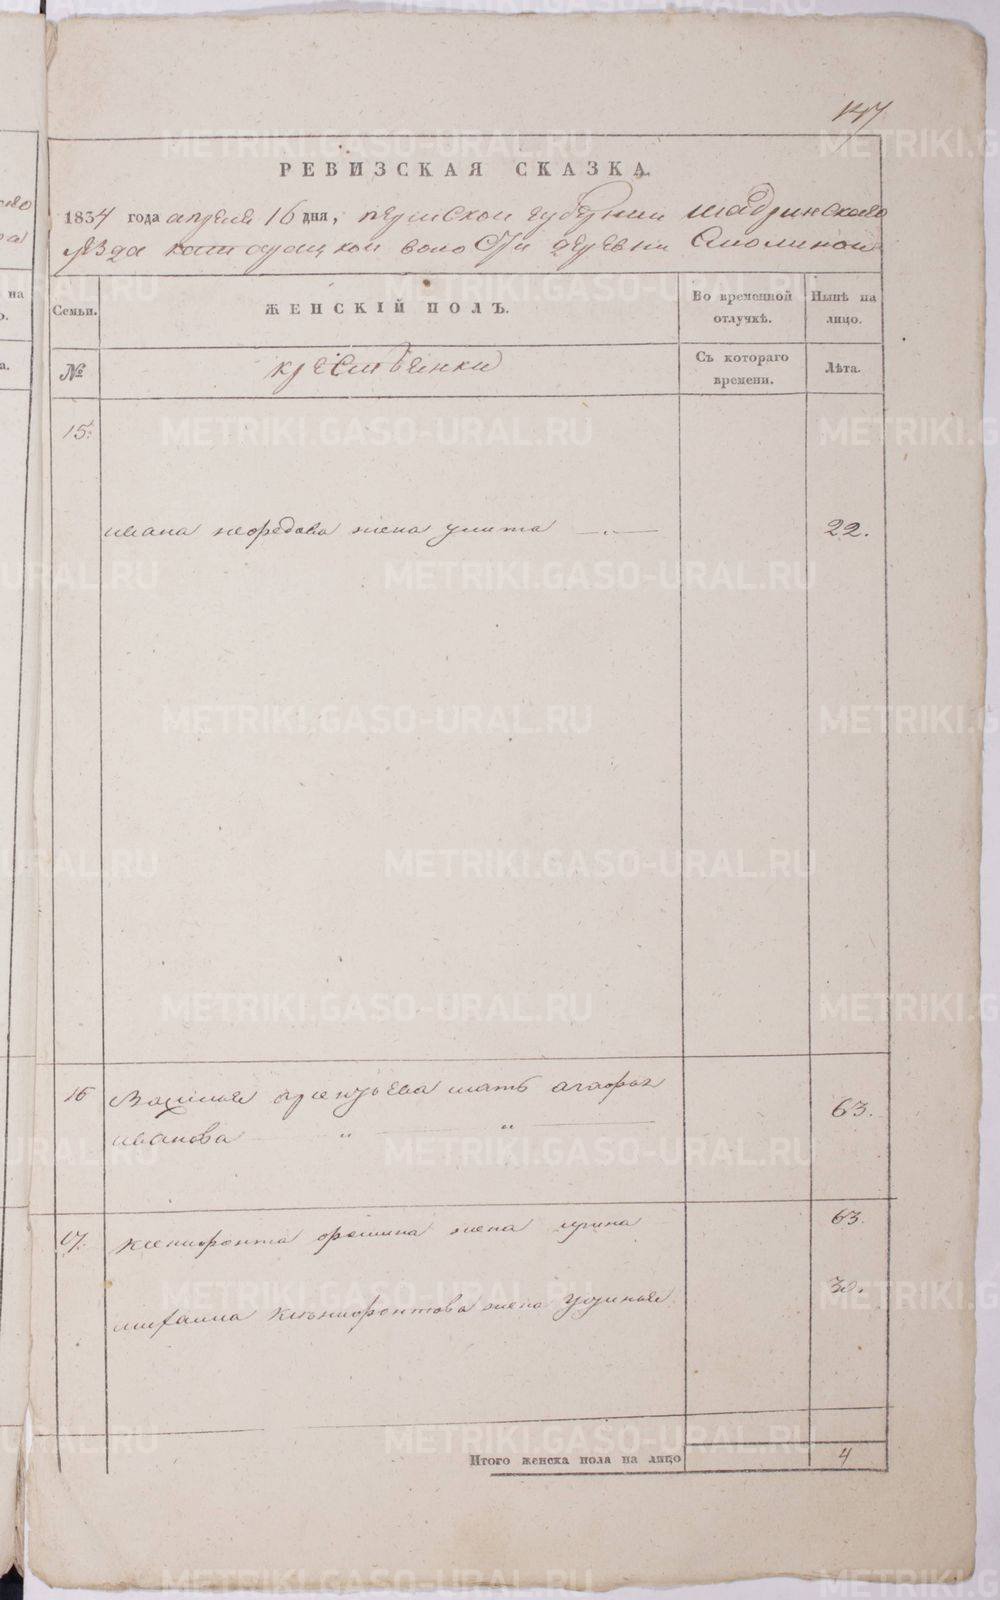 147
РЕВИЗСКАЯ СКАЗКА.
1834 года апреля 16 дня, пермской губернии шадринского
уезда волости деревни Смолиной
Семьи. ЖЕНСКІЙ ПОЛЪ. Во временной отлучкѣ. Нынѣ на лицо.
№ крестьвенки Съ котораго времени. Лѣта.
15.
ивана нефедова жена улита 22.
16 мать агафья
иванова 63.
17. ксенофонта жена ирина 63.
михаила ксенофонтова жена устинья 30.
Итого женска пола на лицо 4
METRIKI.GASO-URAL.RU